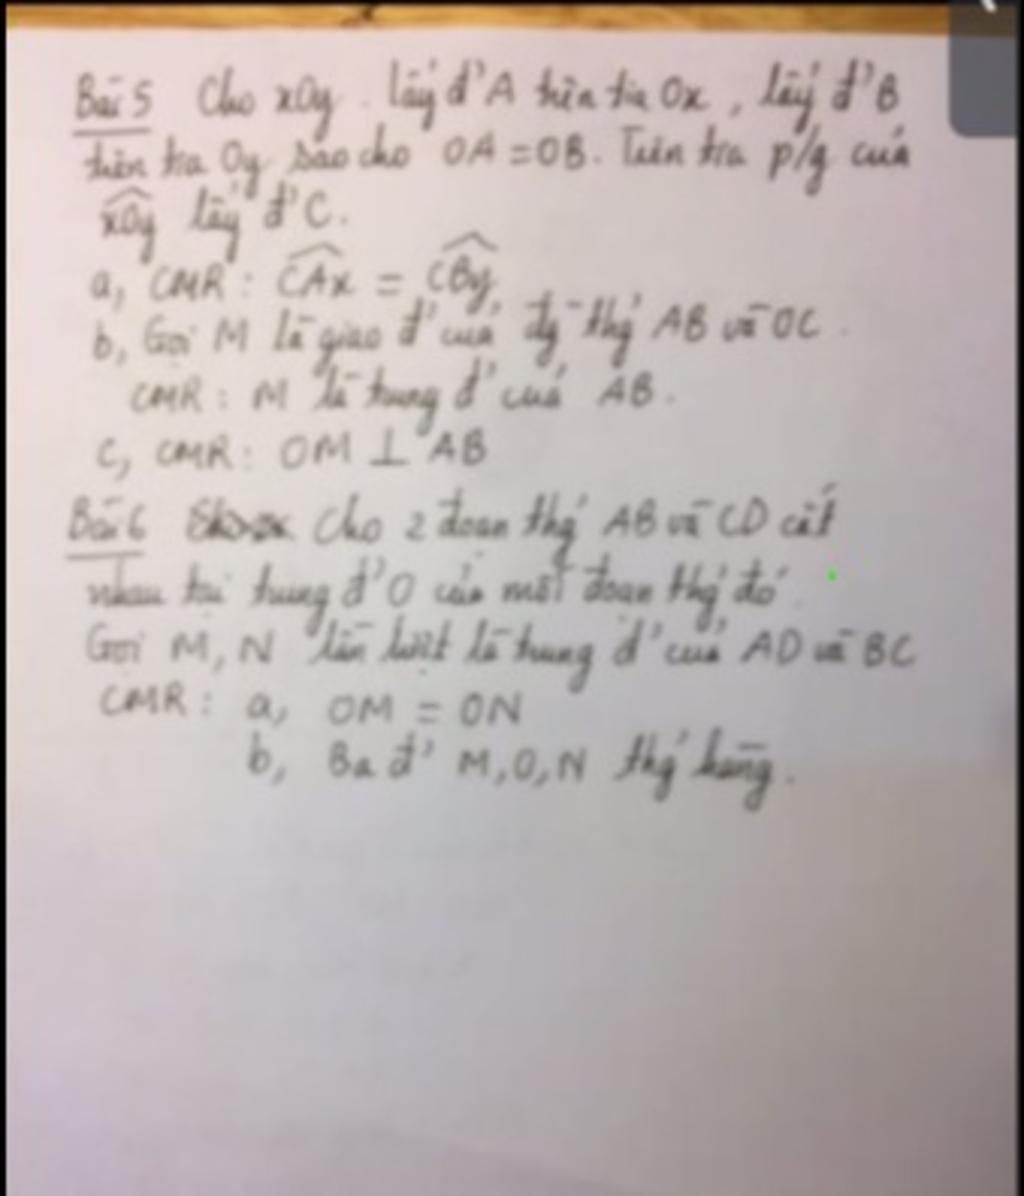 Bài 5 Cho xOy. lấy đ' A trên tia Ox, lấy đ' B
trên tia Oy sao cho OA = OB. Trên tia p/g của
xOy lấy đ' C.
a, CMR: CAx = CBy
b, Gọi M là giao đ' của đg thg AB và OC.
CMR: M là trung đ' của AB.
c, CMR: OM ⊥ AB
Bài 6 Cho 2 đoạn thg AB và CD cắt
nhau tại trung đ' O của mỗi đoạn thg đó.
Gọi M, N lần lượt là trung đ' của AD và BC
CMR: a, OM = ON
b, Ba đ' M, O, N thg hàng.